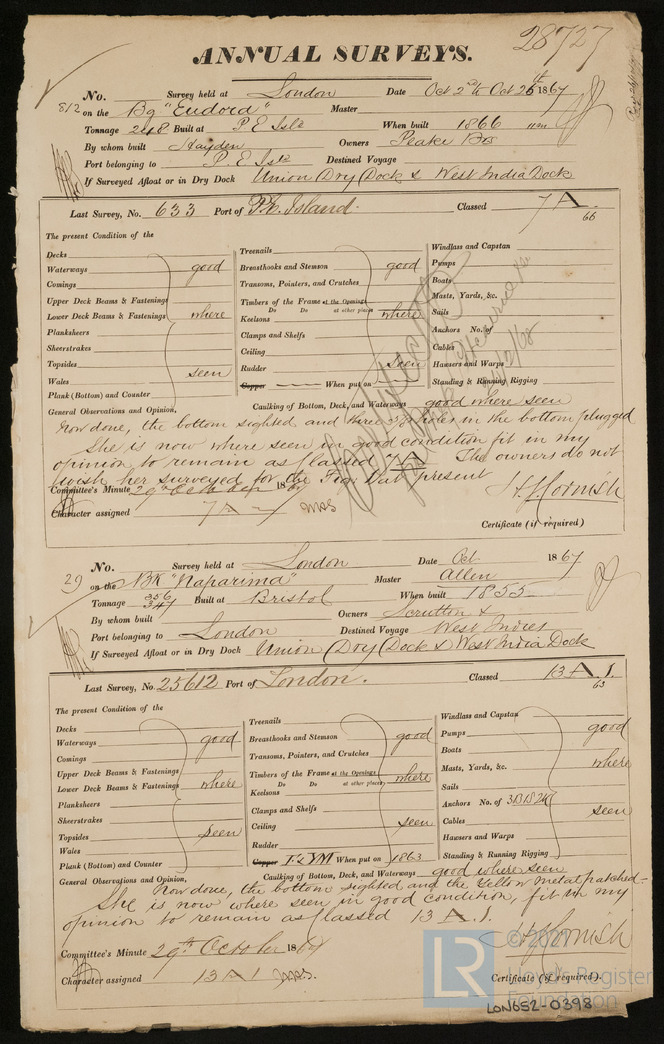 28727
ANNUAL SURVEYS.
No. Survey held at London Date Oct 2nd to Oct 26th 1867
812 on the Bg "Eudora" Master
Tonnage 248 Built at P E Isle When built 1866
By whom built Hayden Owners Peake Bs
Port belonging to P. E. Isle Destined Voyage
If Surveyed Afloat or in Dry Dock Union Dry Dock & West India Dock
Last Survey, No. 633 Port of P. E. Island. Classed 7 A 66
The present Condition of the
Decks
Waterways good
Comings
Upper Deck Beams & Fastenings
Lower Deck Beams & Fastenings where
Planksheers
Sheerstrakes
Topsides
Wales seen
Plank (Bottom) and Counter
Treenails
Breasthooks and Stemson good
Transoms, Pointers, and Crutches
Timbers of the Frame at the Openings
Do Do at other places where
Keelsons
Clamps and Shelfs
Ceiling
Rudder seen
Copper When put on
Windlass and Capstan
Pumps
Boats
Masts, Yards, &c.
Sails
Anchors No. of
Cables
Hawsers and Warps
Standing & Running Rigging
General Observations and Opinion, Caulking of Bottom, Deck, and Waterways good where seen
Now done, the bottom sighted, and three holes in the bottom plugged
She is now where seen in good condition fit in my
opinion to remain as classed 7A The owners do not
wish her surveyed for the Fig. 1 at present
Committee's Minute 29th October 1867
H. J. Cornish
Character assigned 7 A 1
Certificate (if required)
No. Survey held at London Date Oct 1867
29 on the Bk "Naparima" Master Allen
Tonnage 356 347 Built at Bristol When built 1855
By whom built Owners Scrutton &
Port belonging to London Destined Voyage West Indies
If Surveyed Afloat or in Dry Dock Union Dry Dock & West India Dock
Last Survey, No 25612 Port of London. Classed 13 A .1. 63
The present Condition of the
Decks
Waterways good
Comings
Upper Deck Beams & Fastenings
Lower Deck Beams & Fastenings where
Planksheers
Sheerstrakes
Topsides seen
Wales
Plank (Bottom) and Counter
Treenails
Breasthooks and Stemson good
Transoms, Pointers, and Crutches
Timbers of the Frame at the Openings where
Do Do at other places
Keelsons
Clamps and Shelfs
Ceiling seen
Rudder
Copper F & YM When put on 1863
Windlass and Capstan
Pumps good
Boats
Masts, Yards, &c. where
Sails
Anchors No. of 3B 1S 2K
Cables seen
Hawsers and Warps
Standing & Running Rigging
General Observations and Opinion, Caulking of Bottom, Deck, and Waterways good where seen
Now done, the bottom sighted and the Yellow metal patched
She is now where seen in good condition, fit in my
opinion to remain as classed 13 A .1.
H J Cornish
Committee's Minute 29th October 1867
Character assigned 13 A 1
Certificate (if required)
© 2020
LR
Lloyd's Register
Foundation
LON652-0398